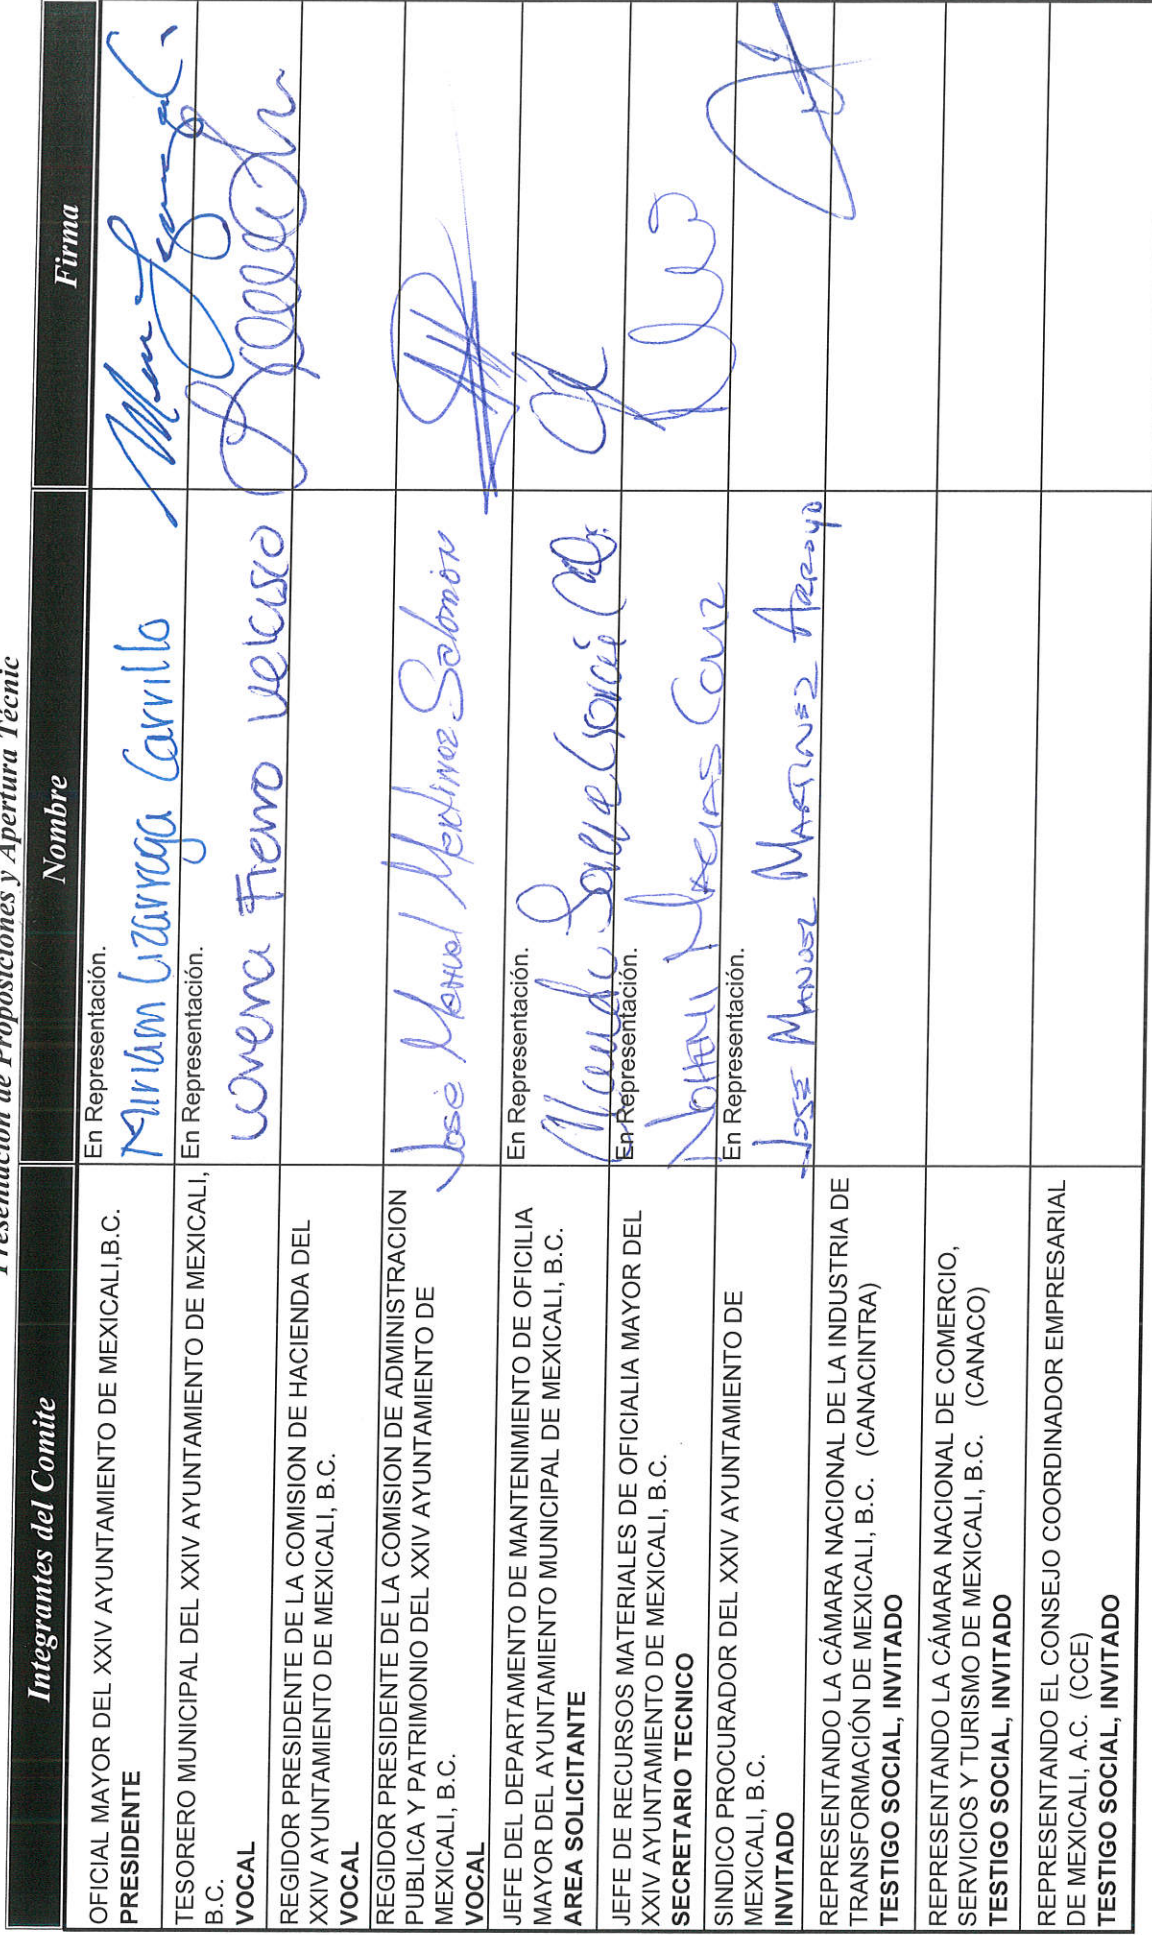 Presentación de Proposiciones y Apertura Técnic
Integrantes del Comite Nombre Firma
OFICIAL MAYOR DEL XXIV AYUNTAMIENTO DE MEXICALI,B.C.
PRESIDENTE
En Representación.
Miriam Lizarraga Carrillo
TESORERO MUNICIPAL DEL XXIV AYUNTAMIENTO DE MEXICALI,
B.C.
VOCAL
En Representación.
Lorena Fierro Velasco
REGIDOR PRESIDENTE DE LA COMISION DE HACIENDA DEL
XXIV AYUNTAMIENTO DE MEXICALI, B.C.
VOCAL
REGIDOR PRESIDENTE DE LA COMISION DE ADMINISTRACION
PUBLICA Y PATRIMONIO DEL XXIV AYUNTAMIENTO DE
MEXICALI, B.C.
VOCAL
José Manuel Martinez Salomón
JEFE DEL DEPARTAMENTO DE MANTENIMIENTO DE OFICILIA
MAYOR DEL AYUNTAMIENTO MUNICIPAL DE MEXICALI, B.C.
AREA SOLICITANTE
En Representación.
JEFE DE RECURSOS MATERIALES DE OFICIALIA MAYOR DEL
XXIV AYUNTAMIENTO DE MEXICALI, B.C.
SECRETARIO TECNICO
En Representación.
Macias
SINDICO PROCURADOR DEL XXIV AYUNTAMIENTO DE
MEXICALI, B.C.
INVITADO
En Representación.
José Manuel Martinez Arroyo
REPRESENTANDO LA CÁMARA NACIONAL DE LA INDUSTRIA DE
TRANSFORMACIÓN DE MEXICALI, B.C. (CANACINTRA)
TESTIGO SOCIAL, INVITADO
REPRESENTANDO LA CÁMARA NACIONAL DE COMERCIO,
SERVICIOS Y TURISMO DE MEXICALI, B.C. (CANACO)
TESTIGO SOCIAL, INVITADO
REPRESENTANDO EL CONSEJO COORDINADOR EMPRESARIAL
DE MEXICALI, A.C. (CCE)
TESTIGO SOCIAL, INVITADO